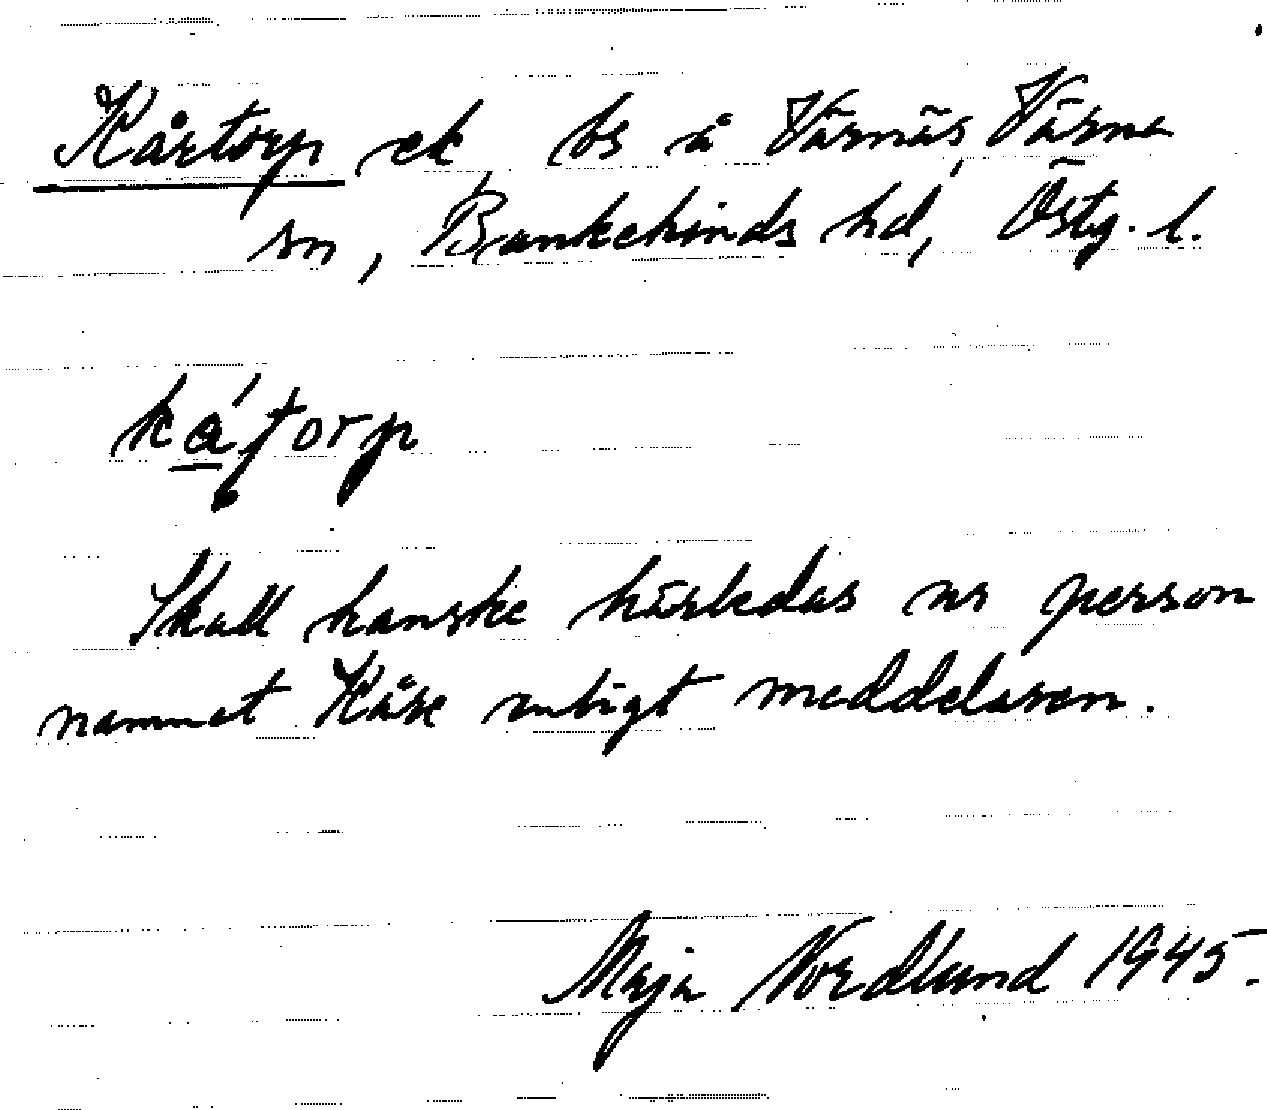 Kårtorp ek bs å Värnäs, Värna
sn, Bankekinds hd, Östg. l.
Skall kanske härledas ur person
namnet Kåre enligt meddelaren.
Maja Nordlund 1945.